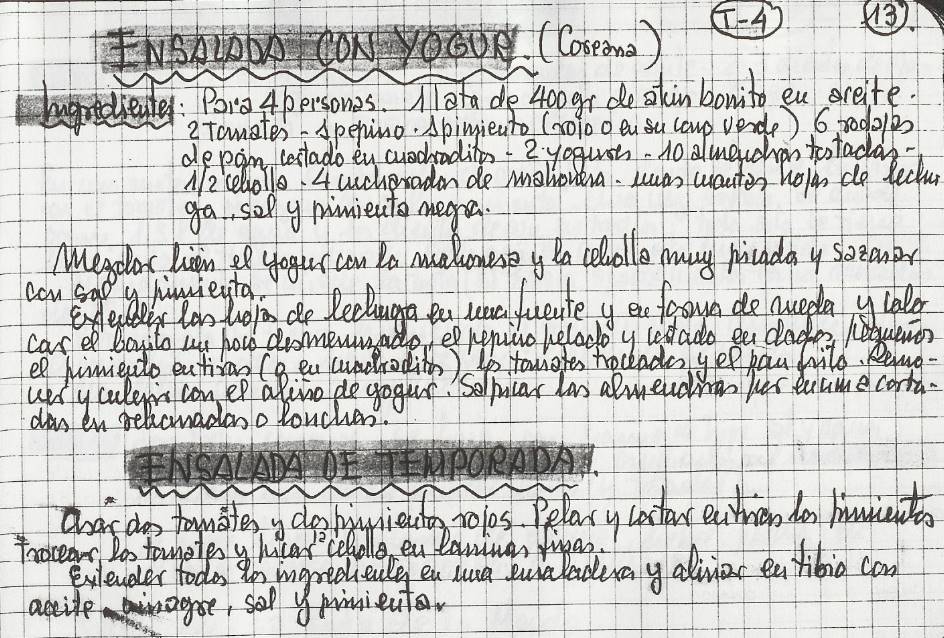 I-4 13.
ENSALADA CON YOGUR. (Coreana)
Ingredientes: Para 4 personas. 1 lata de 400 gr de atún bonito en aceite.
2 Tomates - 1 pepino. 1 pimiento (rojo o en su caso verde) 6 rodajas
de pan cortado en cuadraditos - 2 yogures - 10 almendras tostadas -
1/2 cebolla. 4 cucharadas de mahonesa. unas cuantas hojas de lechu
ga, sal y pimienta negra.
Mezclar bién el yogur con la mahonesa y la cebolla muy picada y sazonar
con sal y pimienta.
Extender las hojas de lechuga en una fuente y en forma de rueda y colo
car el bonito un poco desmenuzado, el pepino pelado y cortado en dados pequeños
el pimiento en tiras (o en cuadraditos) los tomates troceados y el pan frito. Remo-
ver y cubrir con el aliño de yogur. Salpicar las almendras por encima corta-
das en o lonchas.
ENSALADA DE TEMPORADA.
Asar dos tomates y dos pimientos rojos. Pelar y cortar en tiras los pimientos
trocear los tomates y picar 1/2 cebolla en laminas finas.
Extender todos los ingredientes en una ensaladera y aliñar en tibio con
aceite vinagre, sal y pimienta.